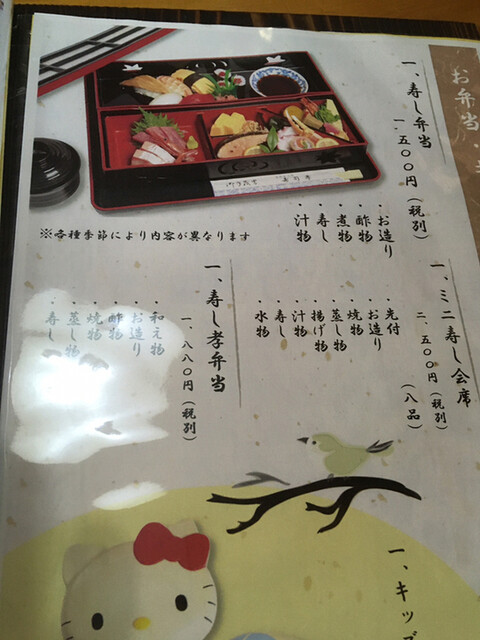 お弁当・
一、寿し弁当
一、五〇〇円（税別）
・お造り
・酢物
・煮物
・寿し
・汁物
※各種季節により内容が異なります
一、ミニ寿し会席
二、五〇〇円（税別）
（八品）
・先付
・お造り
・焼物
・蒸し物
・揚げ物
・汁物
・寿し
・水物
一、寿し孝弁当
一、八八〇円（税別）
・和え物
・お造り
・酢物
・焼物
・蒸し物
・寿し
一、キッズ